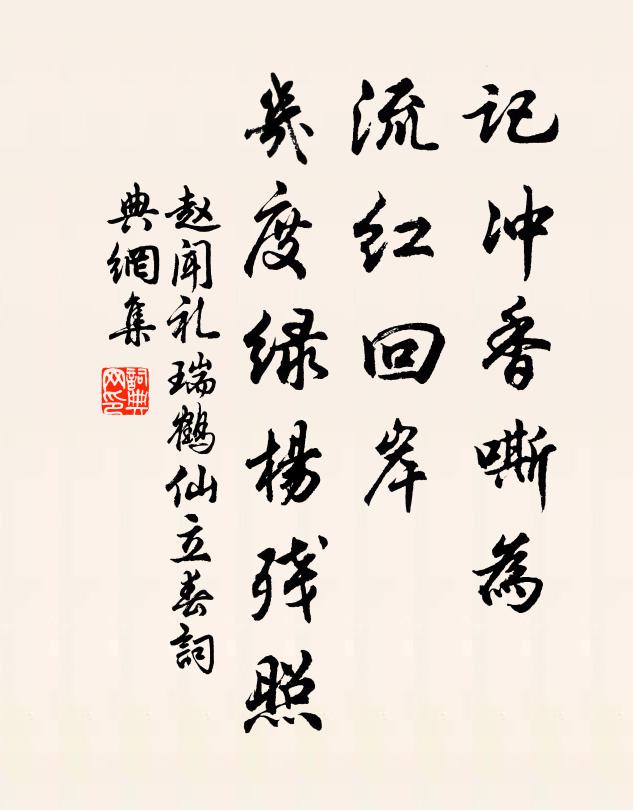 记冲香嘶為
流红回岸
几度绿杨残照
赵闻礼瑞鹤仙立春詞
典網集
詞典
网印